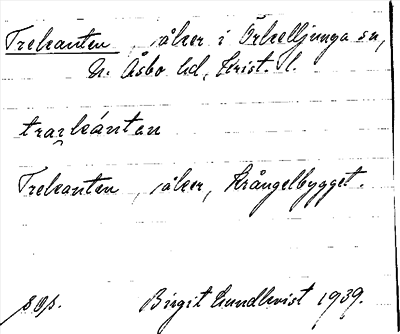 Trekanten, åker i Örkelljunga sn,
N. Åsbo hd, Krist. l.
trarkántən
Trekanten, åker, Krångelbygget.
sop. Birgit Lundkvist 1939.